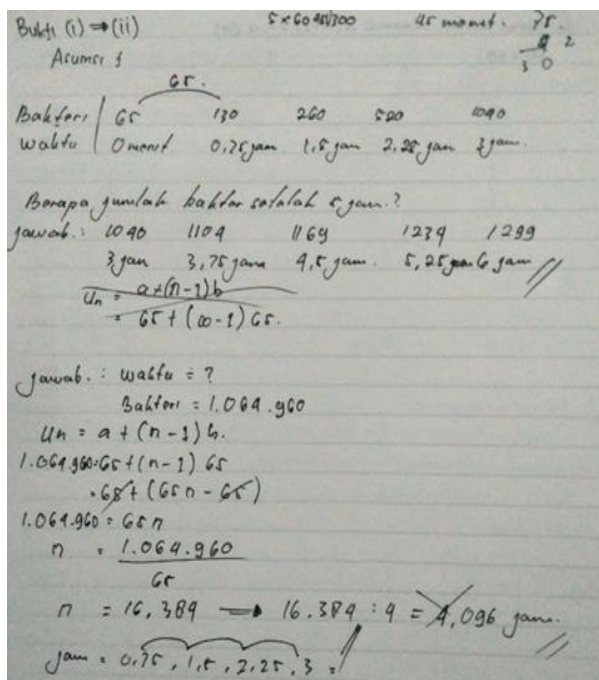 Bukti (i) ⇒ (ii) 5 × 60 = 300 45 menit. 75.
Asumsi
65.
Bakteri | 65 130 260 520 1040
Waktu | 0 menit 0,75 jam 1,5 jam 2,25 jam 3 jam.
Berapa jumlah bakteri setelah 5 jam.?
Jawab.: 1040 1104 1169 1234 1299
3 jam 3,75 jam 4,5 jam. 5,25 jam 6 jam
Un = a + (n-1)b
= 65 + (∞-1) 65.
Jawab. : Waktu = ?
Bakteri = 1.064.960
Un = a + (n-1) b.
1.064.960 = 65 + (n-1) 65
= 65 + (65n - 65)
1.064.960 = 65 n
n = 1.064.960
65
n = 16.384 → 16.384 : 4 = 4,096 jam.
jam = 0,75, 1,5, 2,25, 3 =